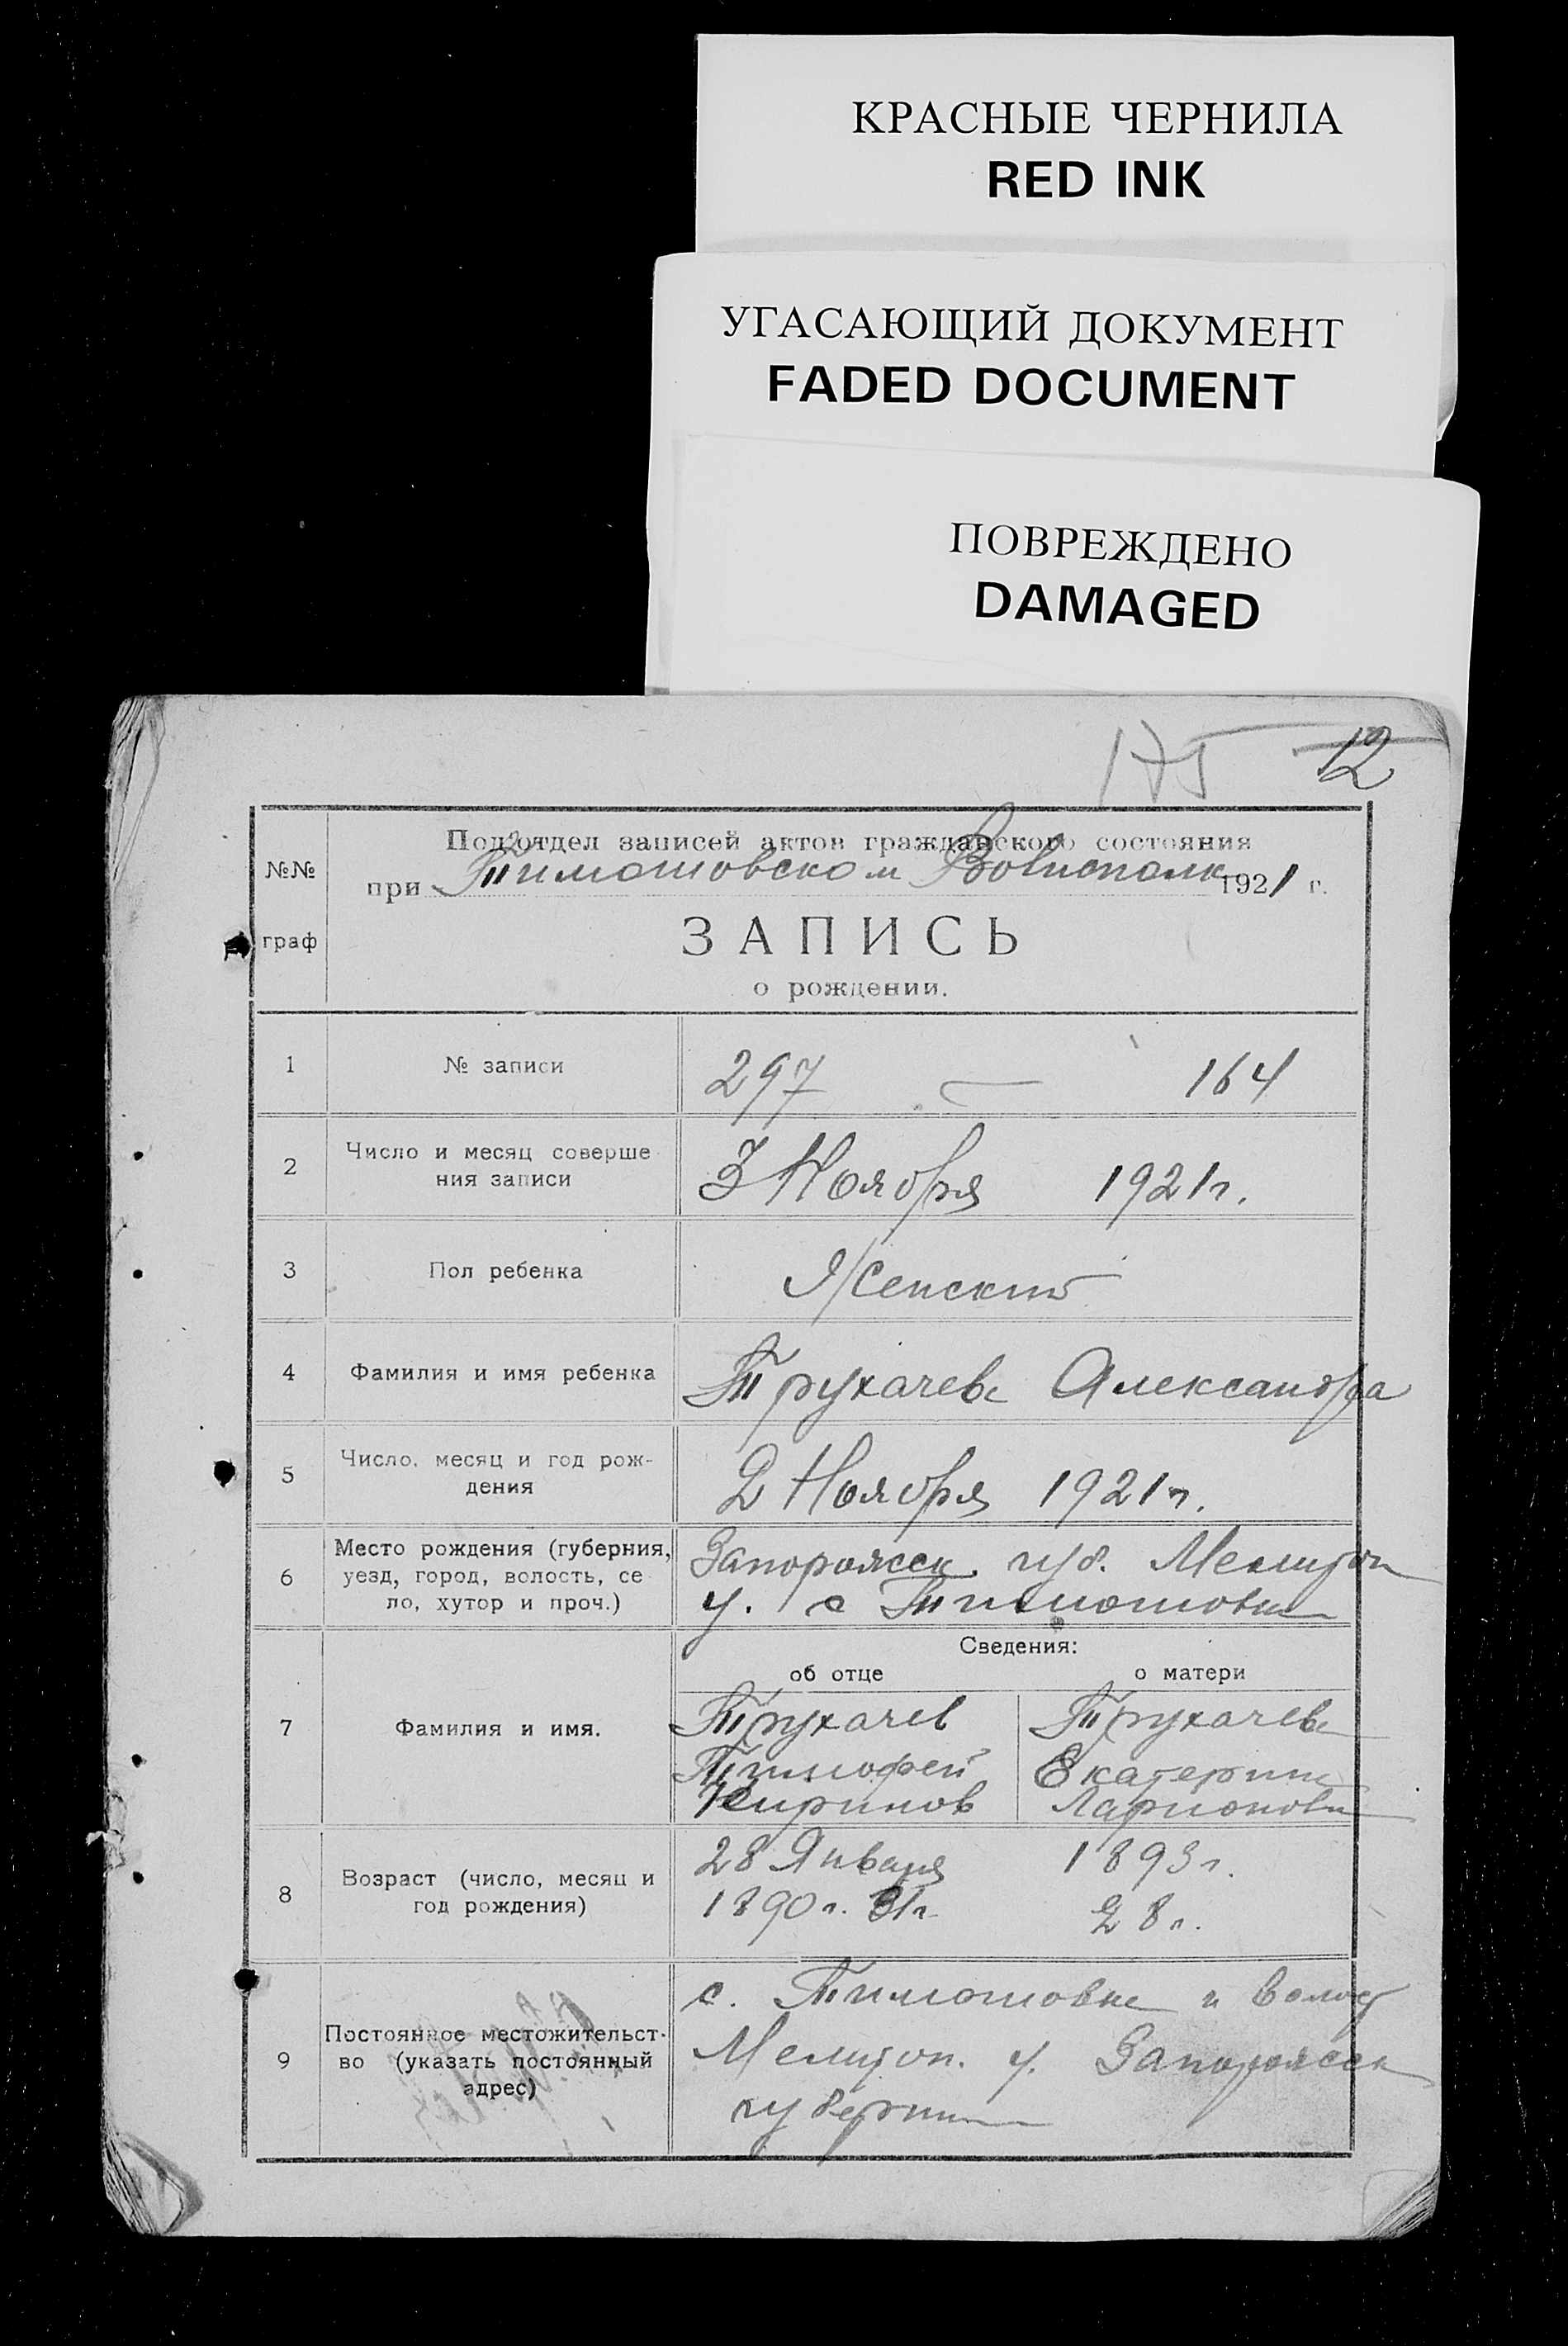 КРАСНЫЕ ЧЕРНИЛА
RED INK
УГАСАЮЩИЙ ДОКУМЕНТ
FADED DOCUMENT
ПОВРЕЖДЕНО
DAMAGED
175 12
№№ граф
Подотдел записей актов гражданского состояния
при Тимошовском Волисполк 1921 г.
ЗАПИСЬ
о рождении.
1 № записи 297 — 164
2 Число и месяц соверше
ния записи 3 Ноября 1921 г.
3 Пол ребенка Женский
4 Фамилия и имя ребенка Трухачева Александра
5 Число, месяц и год рож-
дения 2 Ноября 1921 г.
6 Место рождения (губерния,
уезд, город, волость, се
ло, хутор и проч.)
Запорожск. губ. Мелитоп
у. с Тимошовка
Сведения:
об отце о матери
7 Фамилия и имя.
Трухачев Трухачева
Тимофей Екатерина
Киринов Ларионовна
8 Возраст (число, месяц и
год рождения)
28 Января 1893 г.
1890 г. 31 г. 28 г.
9 Постоянное местожительст-
во (указать постоянный
адрес)
с. Тимошовка и волост
Мелитоп. у. Запорожск
губернии